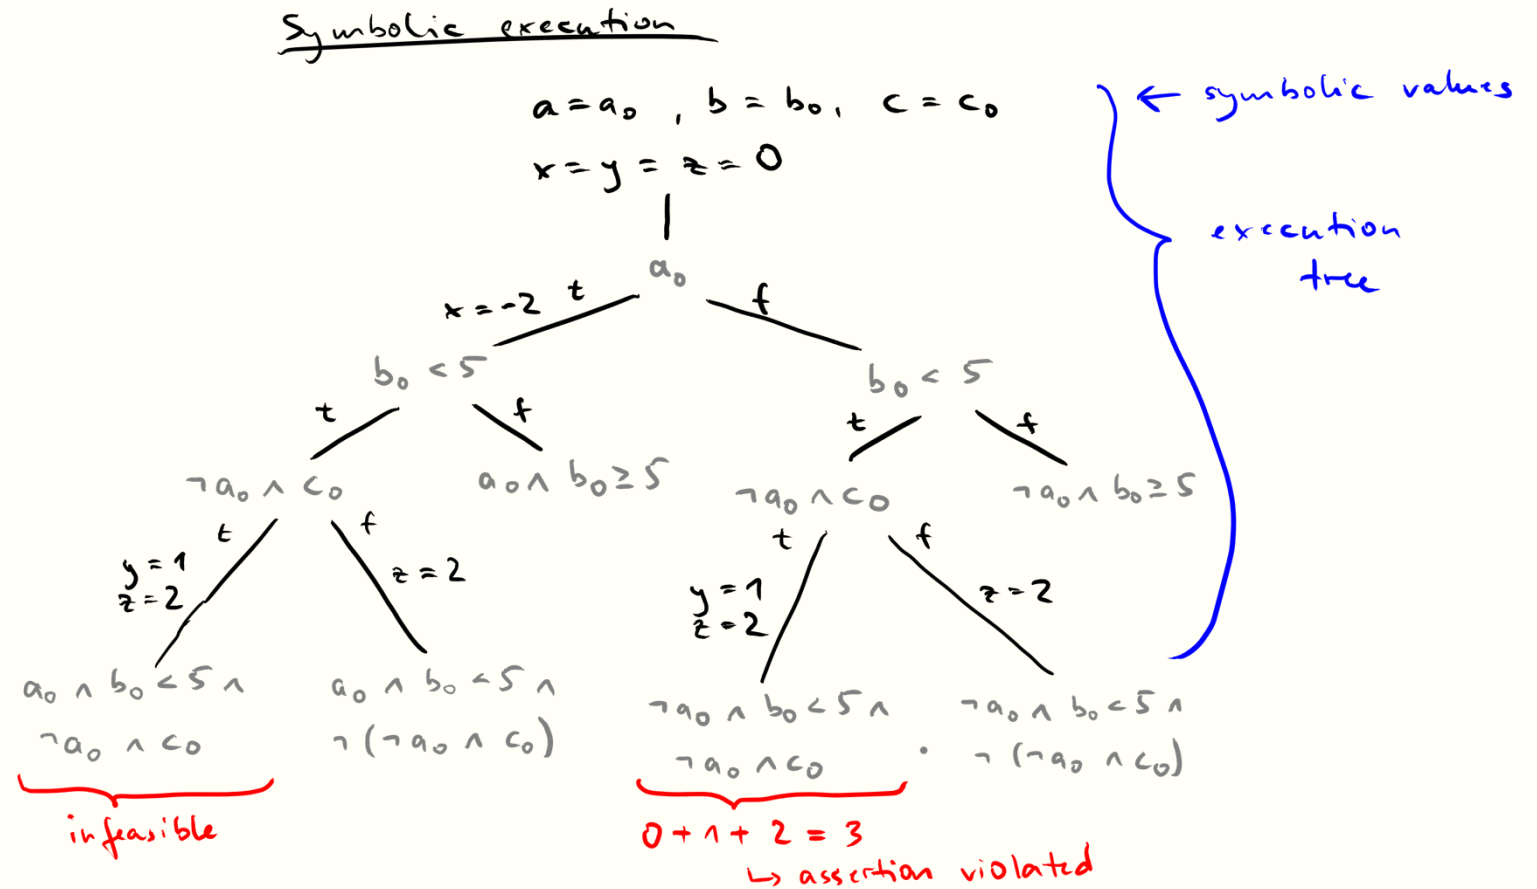 Symbolic execution
a = a₀ , b = b₀, c = c₀
← symbolic values
x = y = z = 0
execution
tree
a₀
x = -2 t
f
b₀ < 5
b₀ < 5
t f
t f
¬a₀ ∧ c₀
a₀ ∧ b₀ ≥ 5
¬a₀ ∧ c₀
¬a₀ ∧ b₀ ≥ 5
t f
t f
y = 1
z = 2
z = 2
y = 1
z = 2
z = 2
a₀ ∧ b₀ < 5 ∧
¬a₀ ∧ c₀
a₀ ∧ b₀ < 5 ∧
¬(¬a₀ ∧ c₀)
¬a₀ ∧ b₀ < 5 ∧
¬a₀ ∧ c₀
¬a₀ ∧ b₀ < 5 ∧
¬(¬a₀ ∧ c₀)
infeasible
0 + 1 + 2 = 3
↳ assertion violated